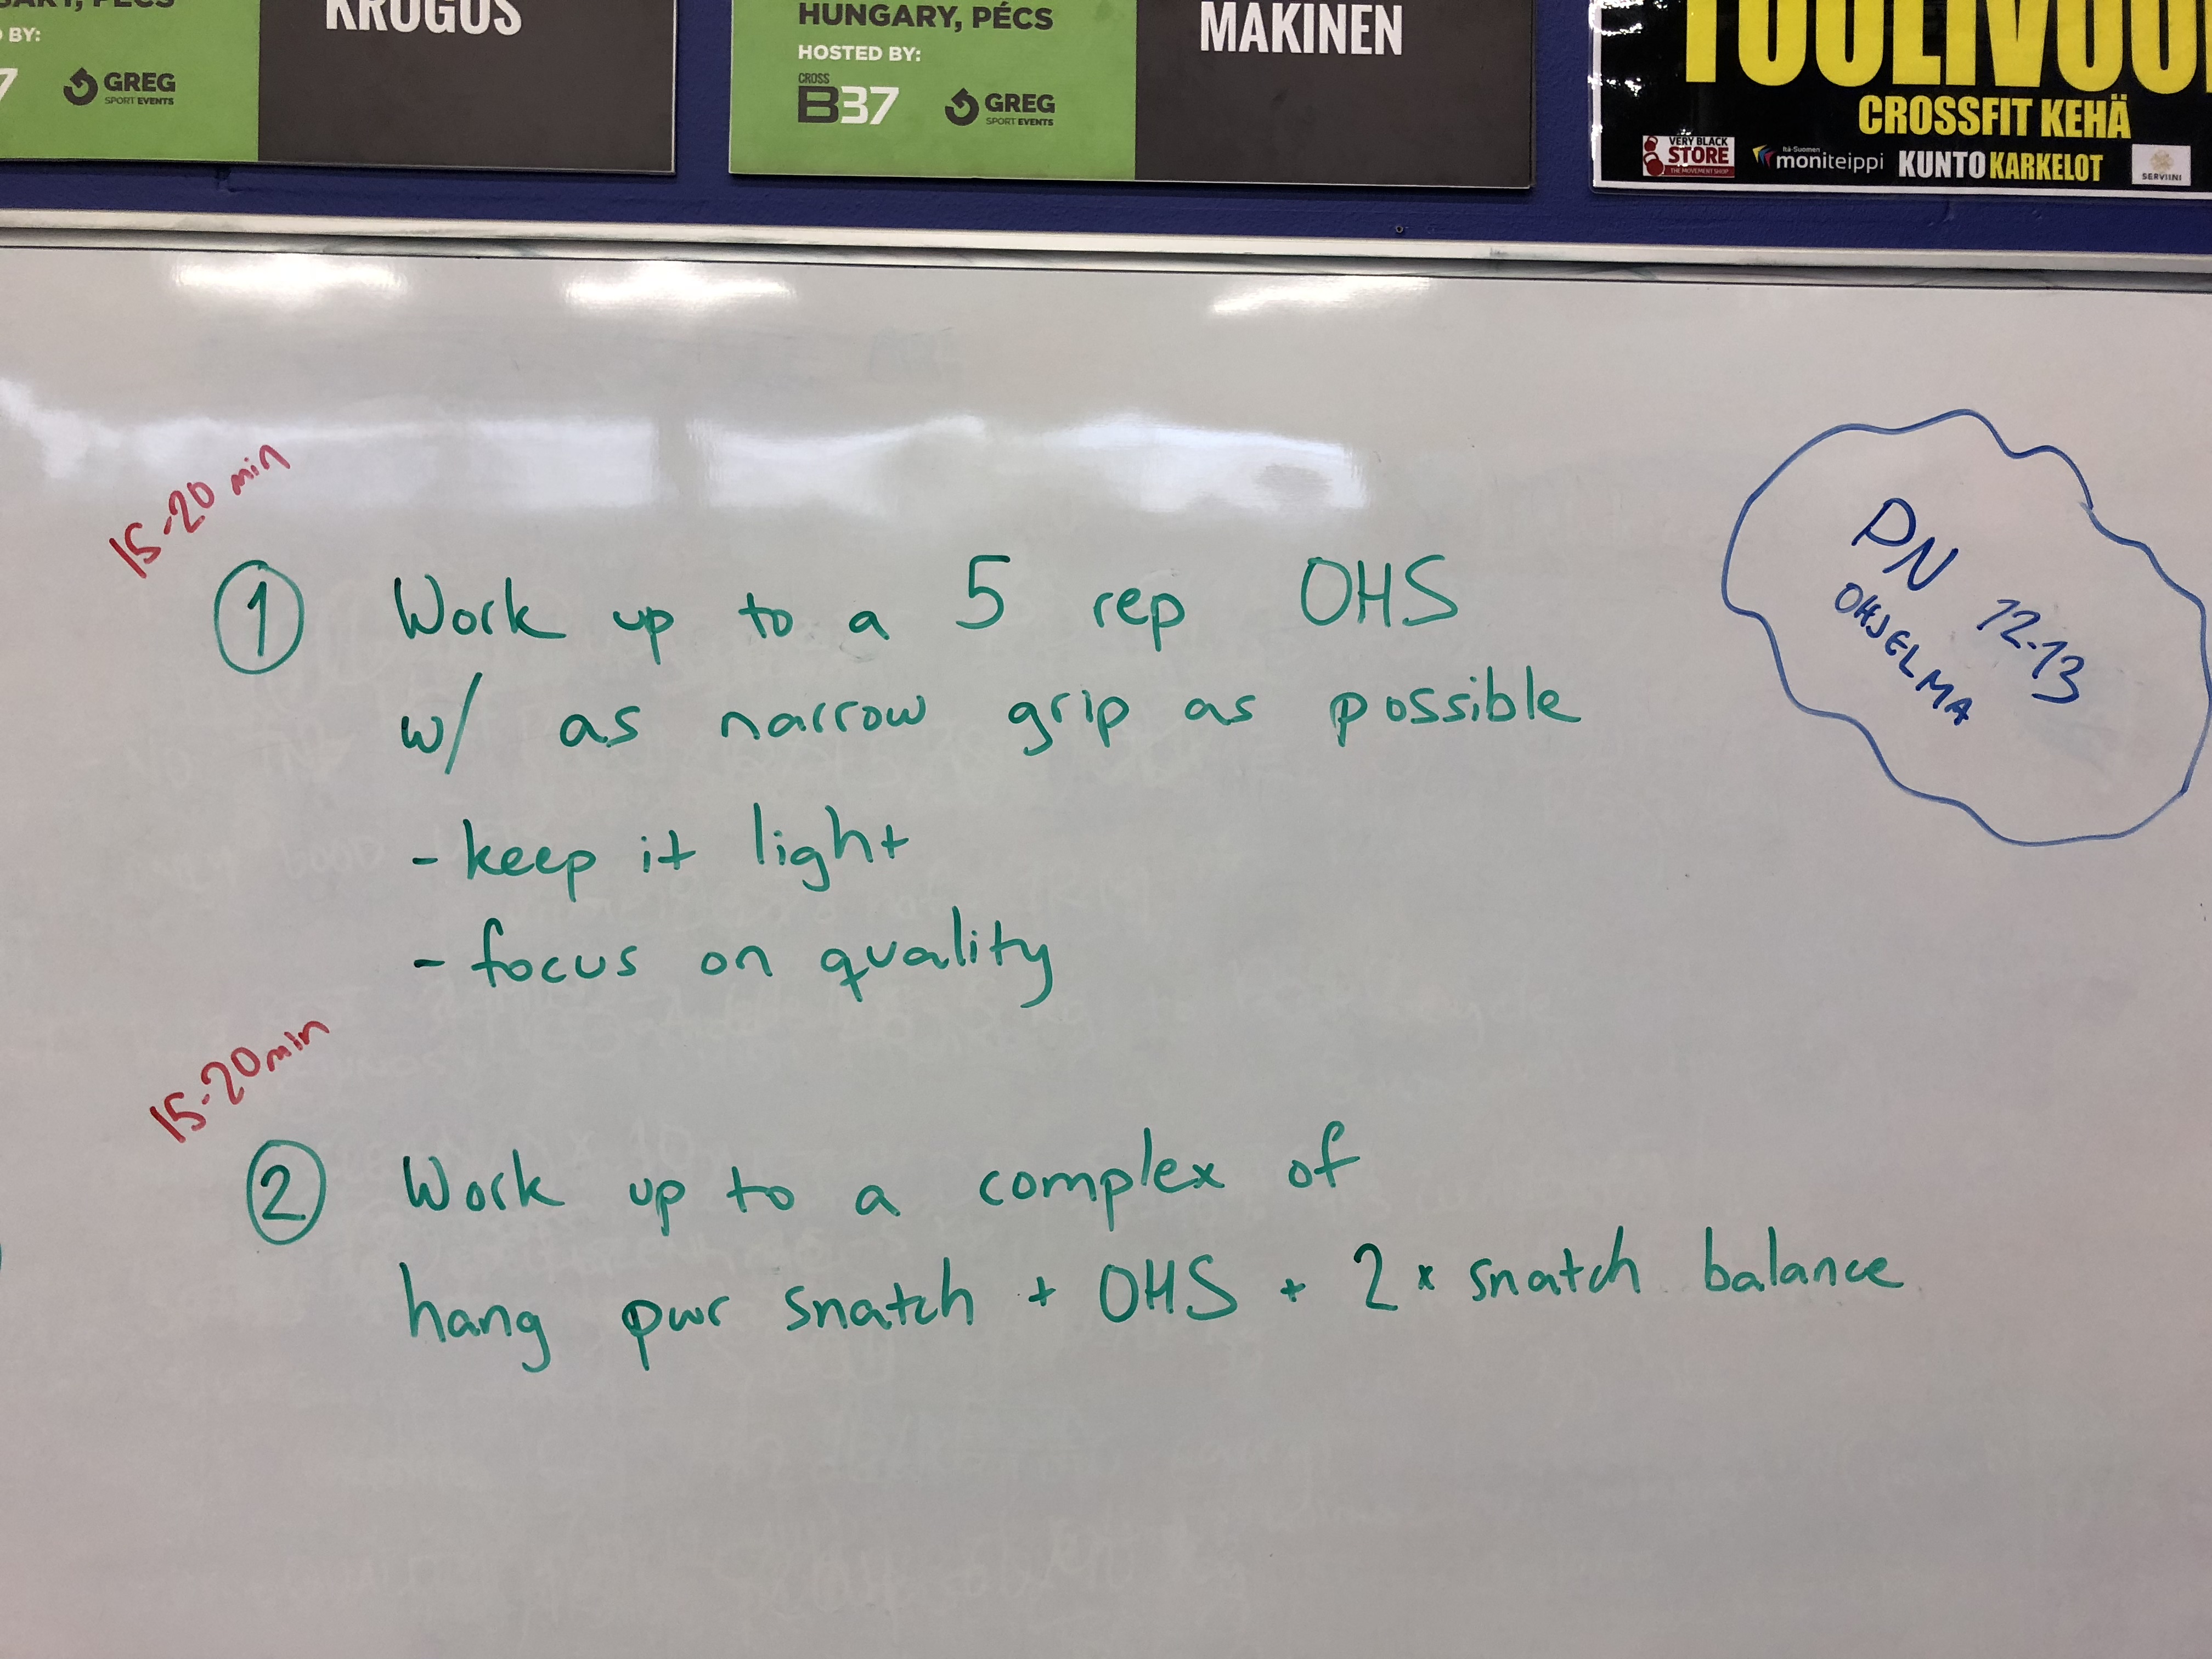 BY:
KROGUS
GREG
SPORT EVENTS
HUNGARY, PÉCS
HOSTED BY:
CROSS
B37
GREG
SPORT EVENTS
MAKINEN
CROSSFIT KEHÄ
VERY BLACK
STORE
THE MOVEMENT SHOP
Itä-Suomen
moniteippi
KUNTOKARKELOT
SERVIINI
15-20 min
① Work up to a 5 rep OHS
w/ as narrow grip as possible
- keep it light
- focus on quality
PN 12-13
OHJELMA
15-20min
② Work up to a complex of
hang pwr snatch + OHS + 2 x snatch balance